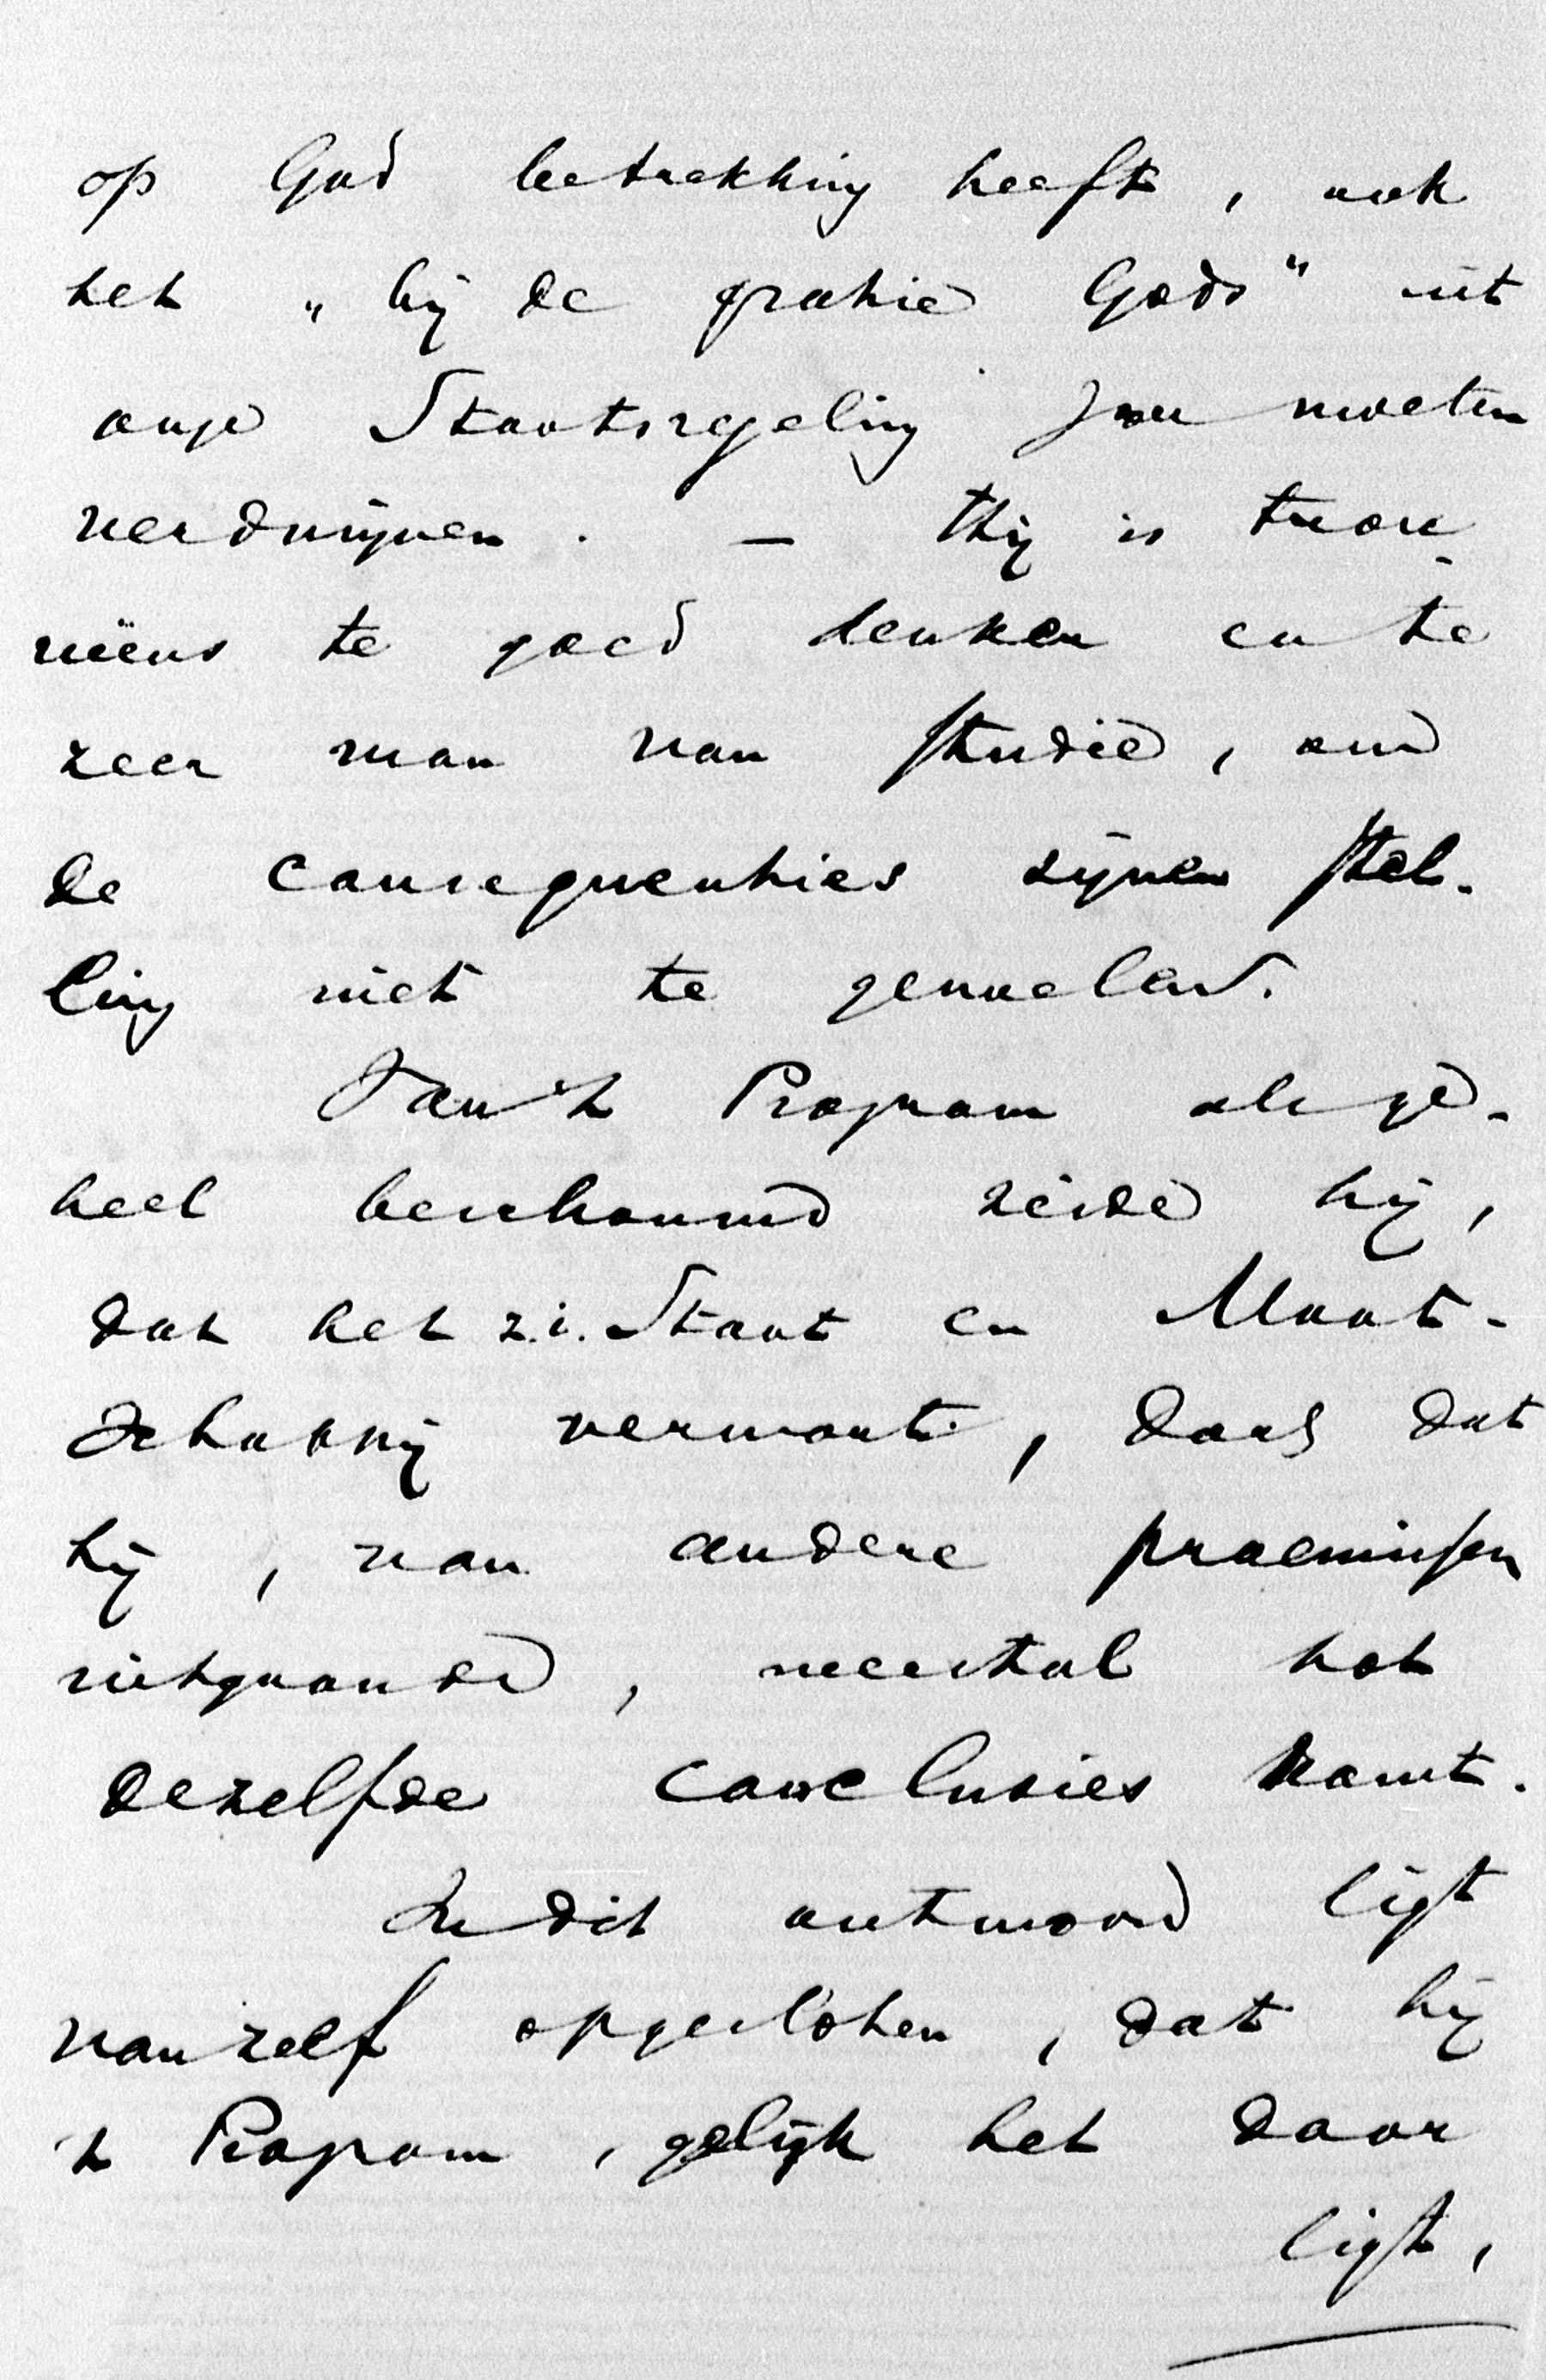 op God betrekking heeft, ook
het „bij de gratie Gods" uit
onze Staatsregeling zou moeten
verdwijnen. — Hij is trou-
wens te goed denker en te
zeer man van studie, om
de consequenties zijner stel-
ling niet te gevoelen.
Van 't Program als ge-
heel beschouwd zeide hij,
dat het z.i. Staat en Maat-
schappij verwart, doch dat
hij, van andere praemissen
uitgaande, meestal tot
dezelfde conclusies komt.
In dit antwoord ligt
van zelf opgesloten, dat hij
't Program, gelijk het daar
ligt,